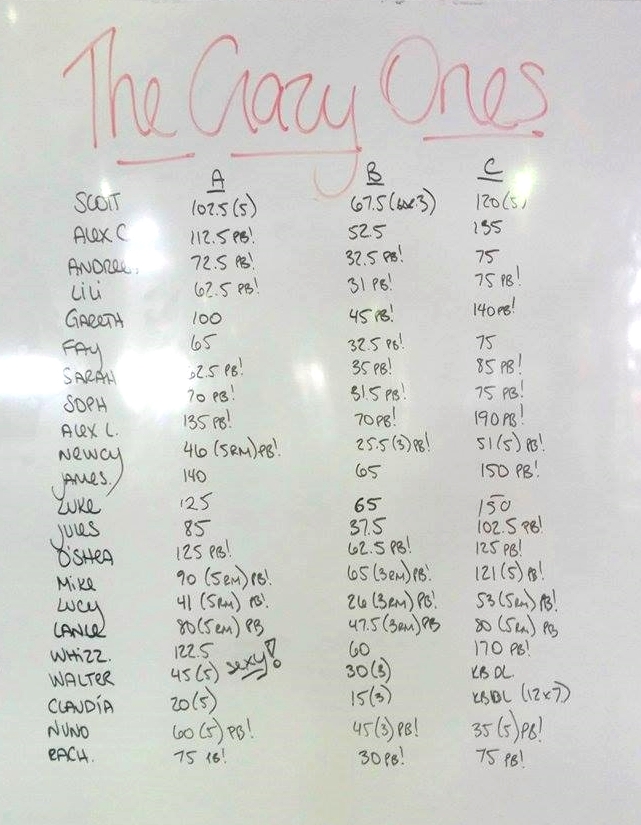 The Crazy Ones
A B C
SCOTT 102.5 (5) 67.5 120 (5)
ALEX C 112.5 PB! 52.5 135
72.5 PB! 32.5 PB! 75
LILI 62.5 PB! 31 PB! 75 PB!
GARETH 100 45 PB! 140 PB!
FAY 65 32.5 PB! 75
SARAH 62.5 PB! 35 PB! 85 PB!
SOPH 70 PB! 31.5 PB! 75 PB!
ALEX L. 135 PB! 70 PB! 190 PB!
NEWCY 46 (5RM) PB! 25.5 (3) PB! 51 (5) PB!
JAMES. 140 65 150 PB!
LUKE 125 65 150
JULES 85 37.5 102.5 PB!
O'SHEA 125 PB! 62.5 PB! 125 PB!
MIKE 90 (5RM) PB! 65 (3RM) PB! 121 (5) PB!
LUCY 41 (5RM) PB! 26 (3RM) PB! 53 (5RM) PB!
LANCE 80 (5RM) PB 47.5 (3RM) PB 80 (5RM) PB
WHIZZ. 122.5 sexy! 60 170 PB!
WALTER 45 (5) 30 (3) KB DL
CLAUDIA 20 (5) 15 (3) KBDL (12x7)
NUNO 60 (5) PB! 45 (3) PB! 35 (5) PB!
RACH. 75 PB! 30 PB! 75 PB!